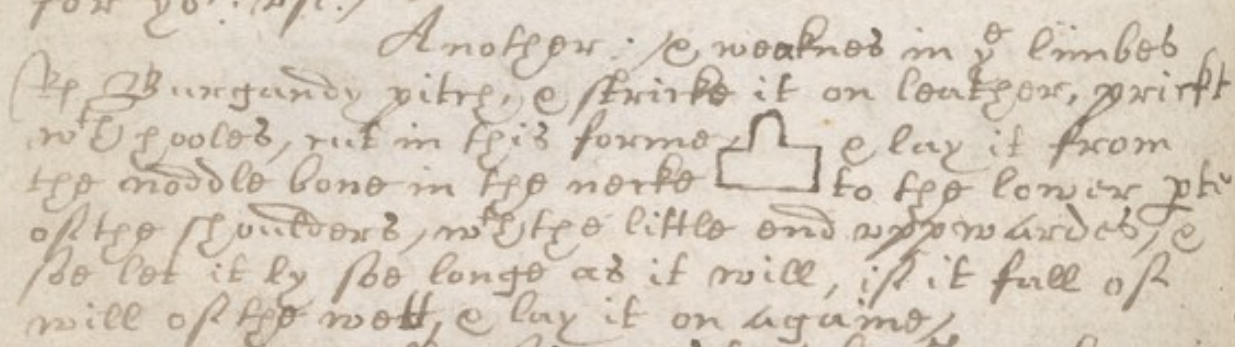 for yo:r vse./
Another : /& weaknes in ye limbes
Rp Burgandy pitch, & stricke it on leather, prickt
wth hooles, cut in this forme, & lay it from
the noddle bone in the necke to the lower pte
of the shoulders, wth the little end vppwardes, &
soe let it ly soe longe as it will, if it fall of
will of the wett, & lay it on againe,